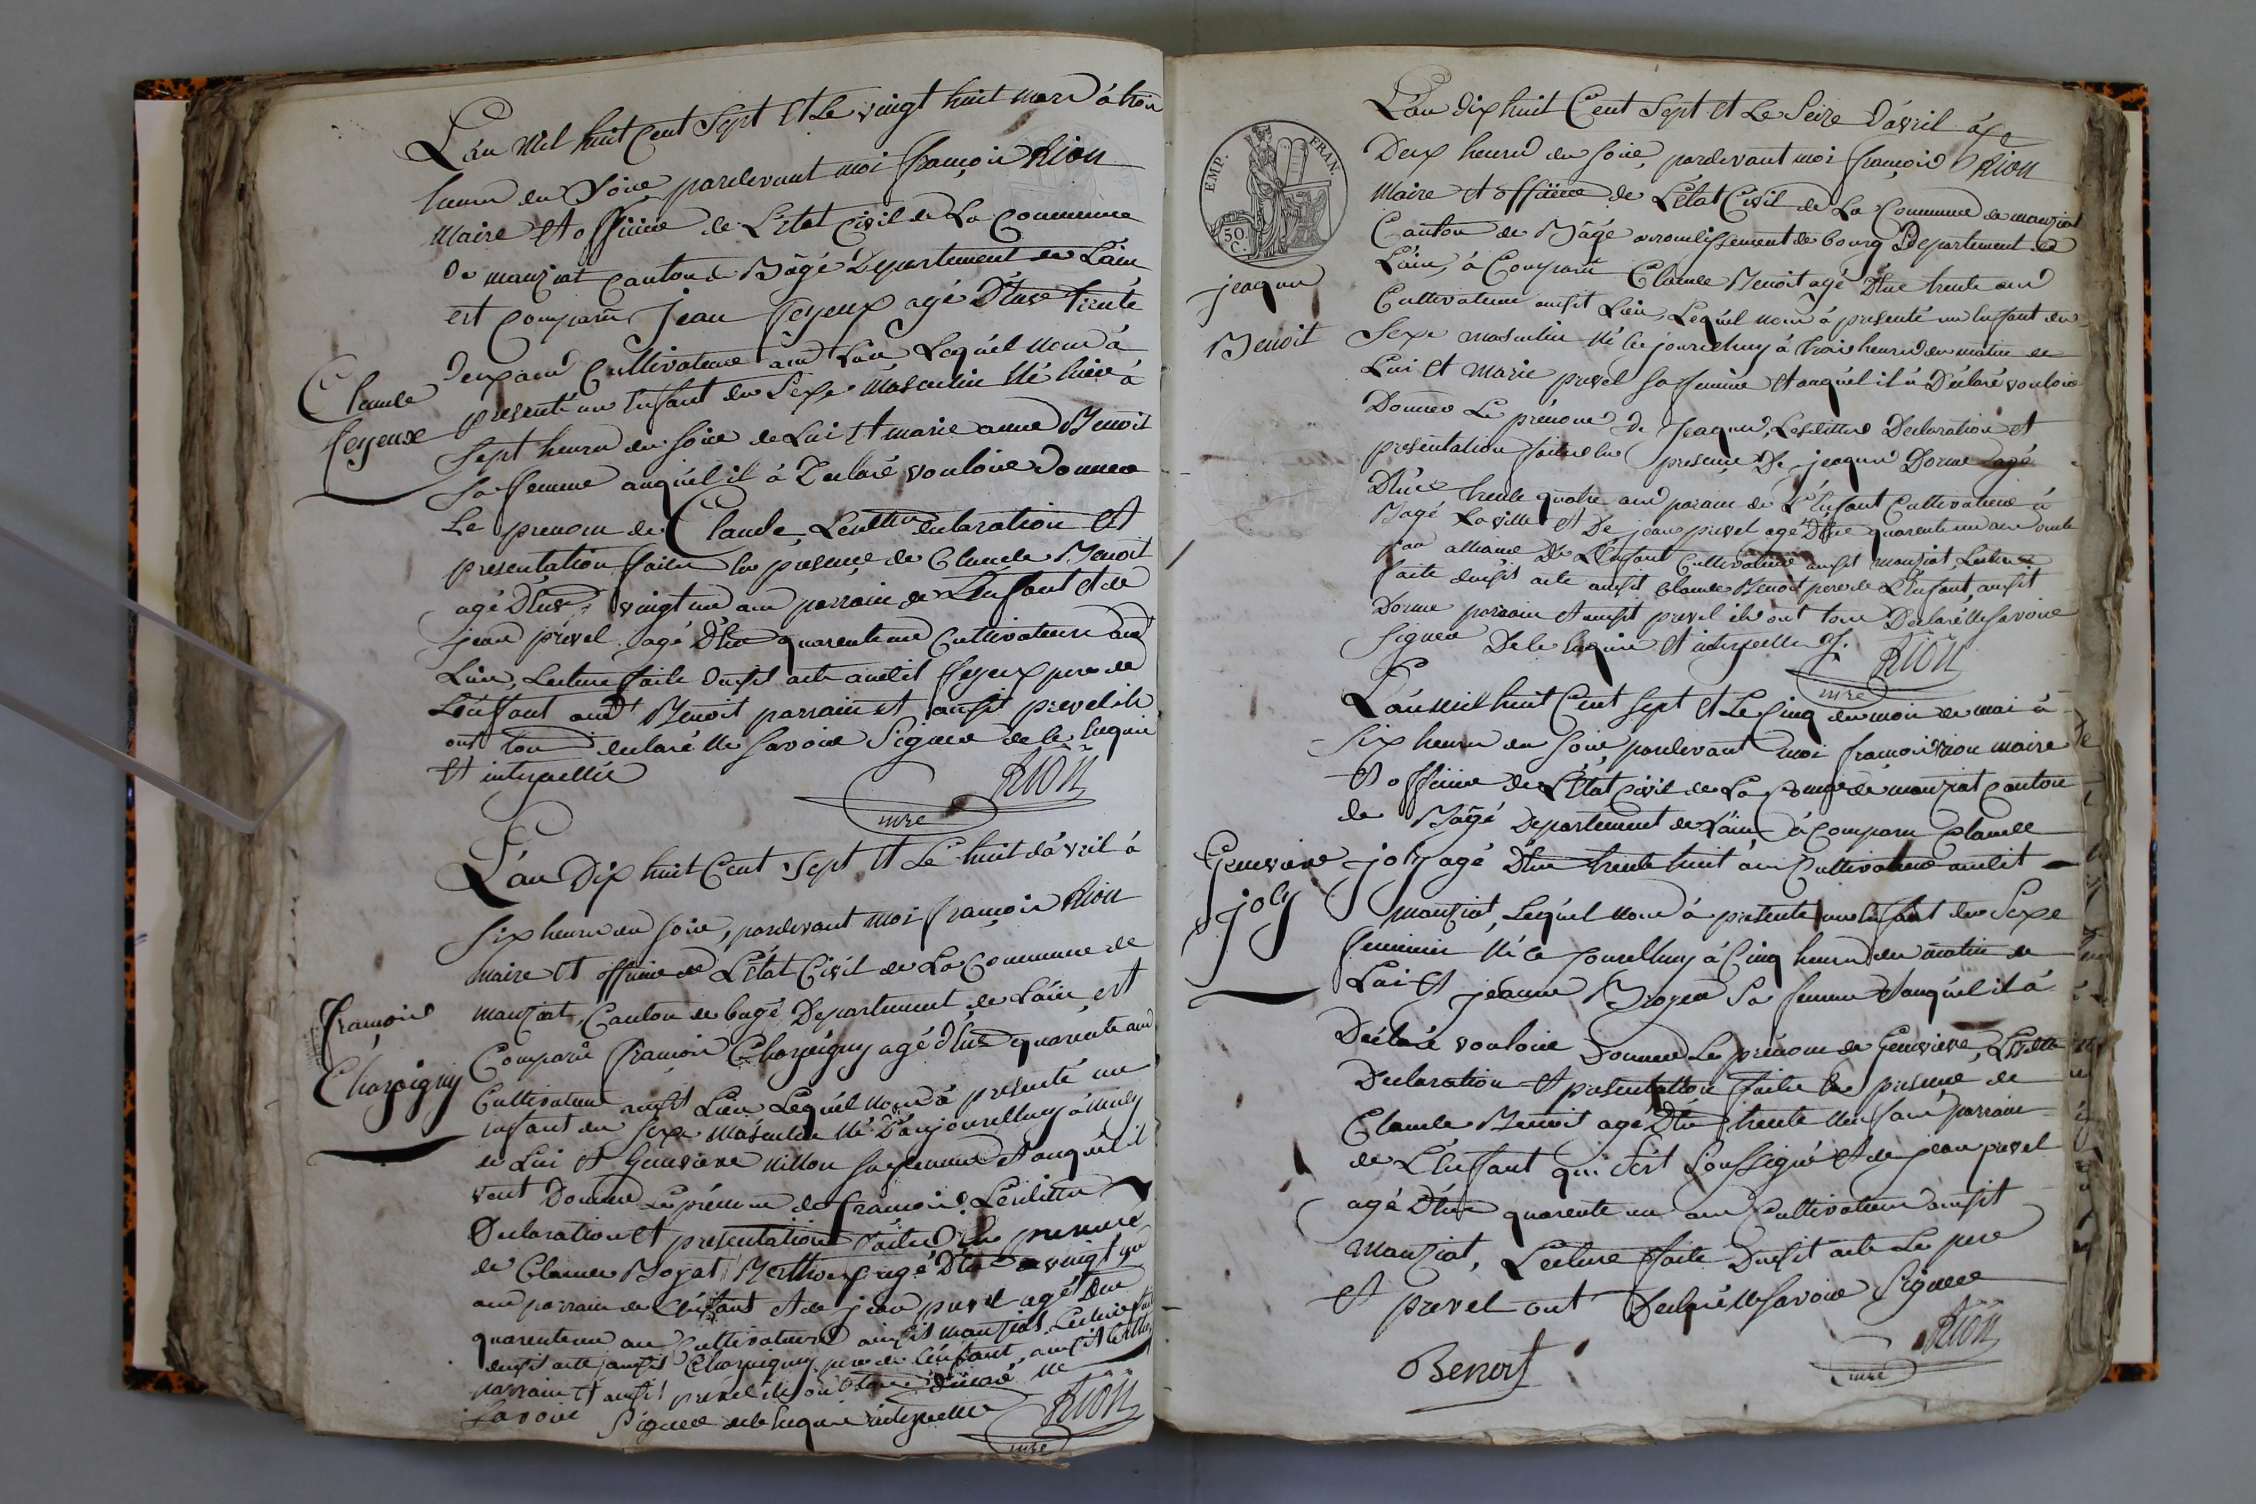 L'an Mil huit Cent Sept Et Le vingt huit mars à trois
heures du Soire pardevant moi françois Rion
Maire Et officiere de L'Etat Civil de La Commune
de manziat Canton de Bâgé Departement de L'ain
est Comparu Jean feyeux agé D'Enre trente
deux ans Cultivateur aud Lieu Lequ'el nous à
Claude
feyeux
presenté un Enfant du Sexe Masculin Né hiere à
Sept heures du Soire de Lui Et marie anne Benoit
Sa femme auqu'el il à Declaré vouloire Donnere
Le prenom de Claude, Lesdittes declaration Et
presentation faites En presence de Claude Benoit
agé D'Enre vingt un ans parrain de L'Enfant Et de
jean prevel agé D'En quarente un Cultivateurs aud
Lieu, Lecture faite dusit acte audit feyeux pere de
L'enfant audt Benoit parrain et ausit prevel ils
ont tous declaré Ne Savoire Signere de ce Enquis
Et interpellés
Rion
mre
L'an Dix huit Cent Sept Et Le huit d'avril à
Six heures du Soire, pardevant moi françois Rion
maire Et officiere de L'Etat Civil de La Commune de
manziat, Canton de bagé Departement de L'ain, est
françois
Charpigny
Comparu françois Charpigny agé d'Enre quarente ans
Cultivateur ausit Lieu Lequ'el nous à presenté un
Enfant du Sexe masculin Né D'aujourdhuy à
de Lui Et Genevieve Nillon Sa femme Et auqu'el il
veut Donnere Le prénom de françois, Lesdittes
Declaration Et presentation faites En presence
de Claude Boyat Berthoux agé D'En vingt
ans parrain de L'enfant Et de jean prevel agé D'En
quarente un ans Cultivateurs ausit manziat Lecture
dusit acte, ausit Charpigny pere de L'enfant, ausit
parrain Et ausit prevel ils ont tous declaré Ne
Savoire Signere de ce Enquis interpellés
Rion
mre
EMP. FRAN.
50
C.
L'an dix huit Cent Sept Et Le Seize D'avril à
Deux heures du Soire, pardevant moi françois Rion
Maire Et officiere de L'Etat Civil de La Commune de manziat
Canton de Bâgé arrondissement de bourg Departement de
L'ain, à Comparu Claude Benoit agé D'Enre trente ans
jeaques
Benoit
Cultivateur ausit Lieu, Lequ'el nous à presenté un Enfant du
Sexe masculin Né Ce jourdhuy à trois heures du matin de
Lui Et Marie prevel Sa femme Et auqu'el il à Déclaré vouloire
Donnere Le prénom de jeaques, Lesdittes Declaration Et
presentation faites En presence De jeaques Dorme agé
D'Enre trente quatre ans parain de L'Enfant Cultivateur à
Bagé La ville Et De jean prevel agé D'En quarente un ans oncle
par alliance de L'Enfant Cultivateur ausit manziat, Lecture
faite dusit acte ausit Claude Benoit pere de L'Enfant, ausit
Dorme parrain Et ausit prevel ils ont tous Declaré Ne Savoire
Signere De ce Enquis Et interpellés
Rion
mre
L'an mil huit Cent Sept Et Le Cinq du mois de mai à
Six heures du Soire pardevant moi françois Rion maire
Et officiere de L'Etat Civil de La Comune de manziat Canton
de Bâgé Departement de L'ain à Comparu Claude
Genevieve
joly
joly agé D'En trente huit ans Cultivateur audit
Manziat, Lequ'el nous à presenté un Enfant du Sexe
feminin Né Ce jourdhuy à Cinq heures du matin de
Lui Et jeanne Broyer Sa femme Et auqu'el il à
Déclaré vouloire Donnere Le prénom de Genevieve, Lesdittes
Declaration Et presentation faite En presence de
Claude Benoit agé D'En trente Neuf ans parrain
de L'Enfant qui S'est Soussigné Et de jean prevel
agé D'En quarente un ans Cultivateur ausit
Manziat, Lecture faite Dusit acte Le pere
Et prevel ont Declaré Ne Savoire Signere
Rion
mre
Benoit